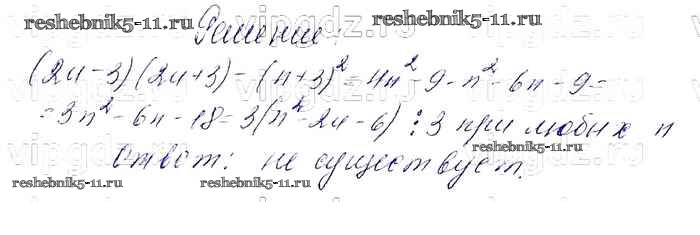 reshebnik5-11.ru reshebnik5-11.ru
Решение:
(2n-3)(2n+3)-(n+3)²=4n²-9-n²-6n-9=
=3n²-6n-18=3(n²-2n-6) ⋮3 при любых n
reshebnik5-11.ru
Ответ: не существует.
reshebnik5-11.ru reshebnik5-11.ru